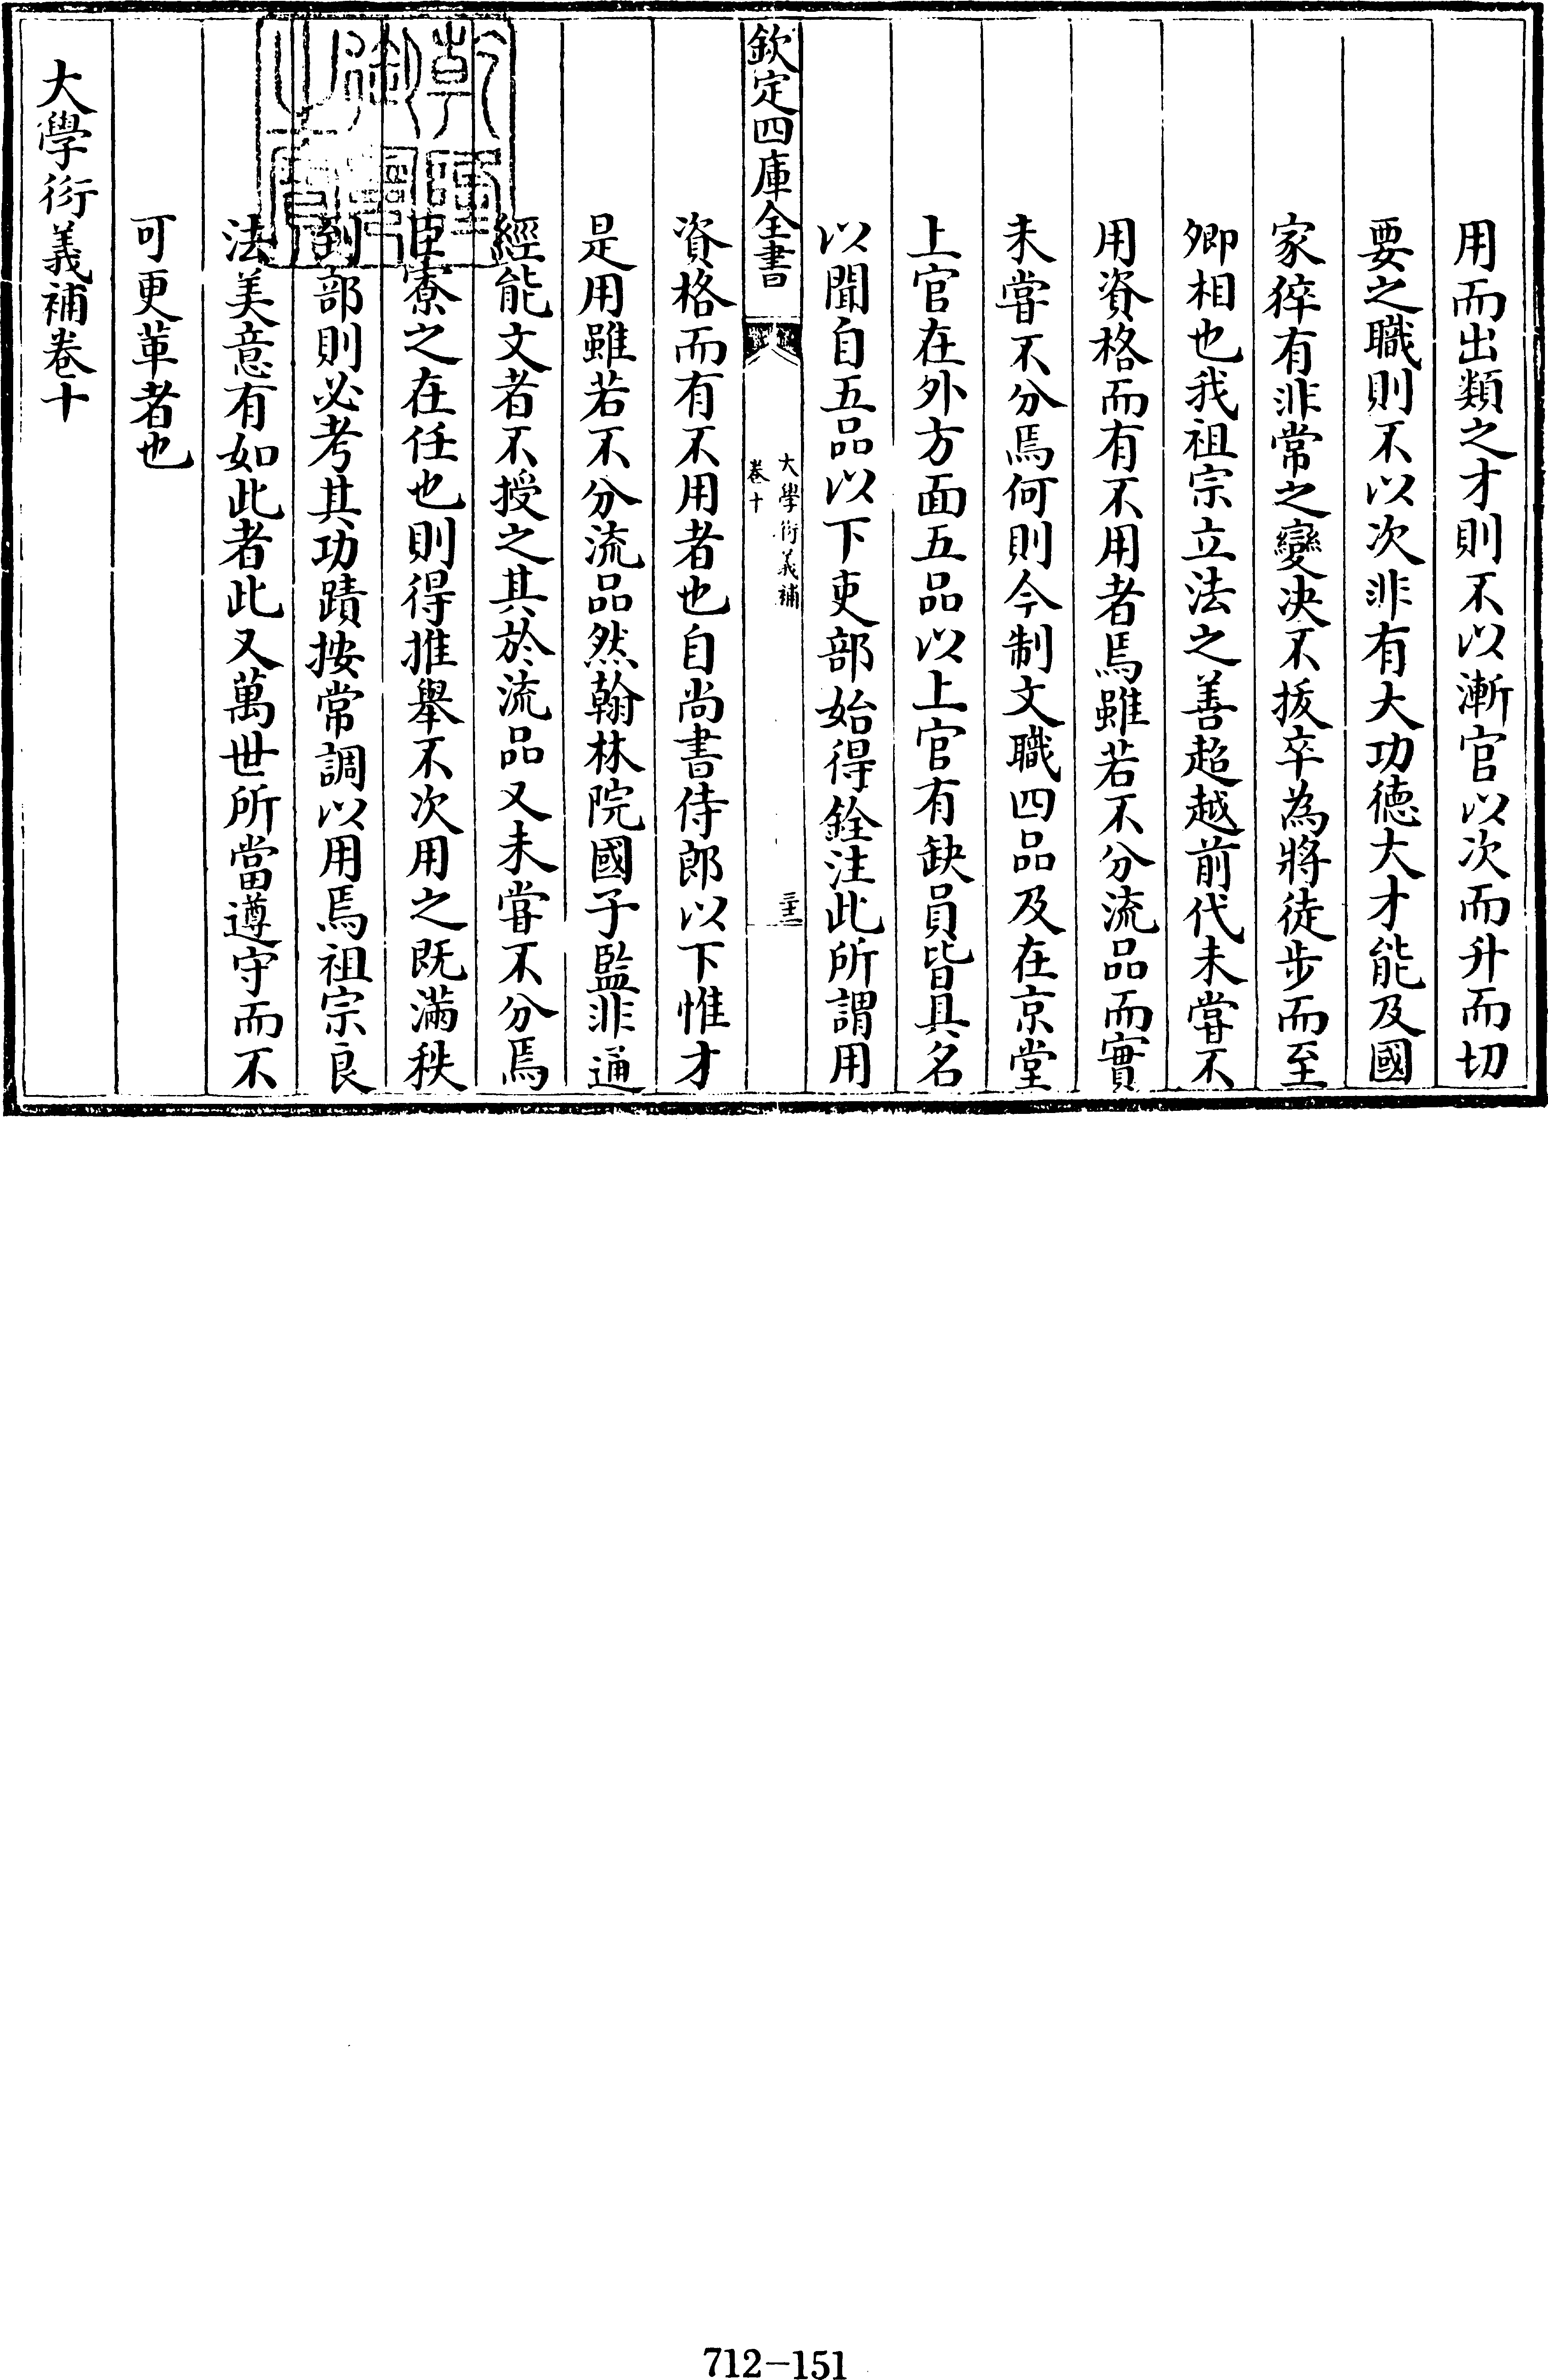 用而出類之才則不以漸官以次而升而切
要之職則不以次非有大功徳大才能及國
家猝有非常之變决不拔卒為將徒步而至
卿相也我祖宗立法之善超越前代未嘗不
用資格而有不用者焉雖若不分流品而實
未嘗不分焉何則今制文職四品及在京堂
上官在外方面五品以上官有缺員皆具名
以聞自五品以下吏部始得銓注此所謂用
欽定四庫全書
大學衍義補
卷十
資格而有不用者也自尚書侍郎以下惟才
是用雖若不分流品然翰林院國子監非通
經能文者不授之其於流品又未嘗不分焉
臣寮之在任也則得推舉不次用之既滿秩
到部則必考其功蹟按常調以用焉祖宗良
法美意有如此者此又萬世所當遵守而不
可更革者也
大學衍義補卷十
712-151